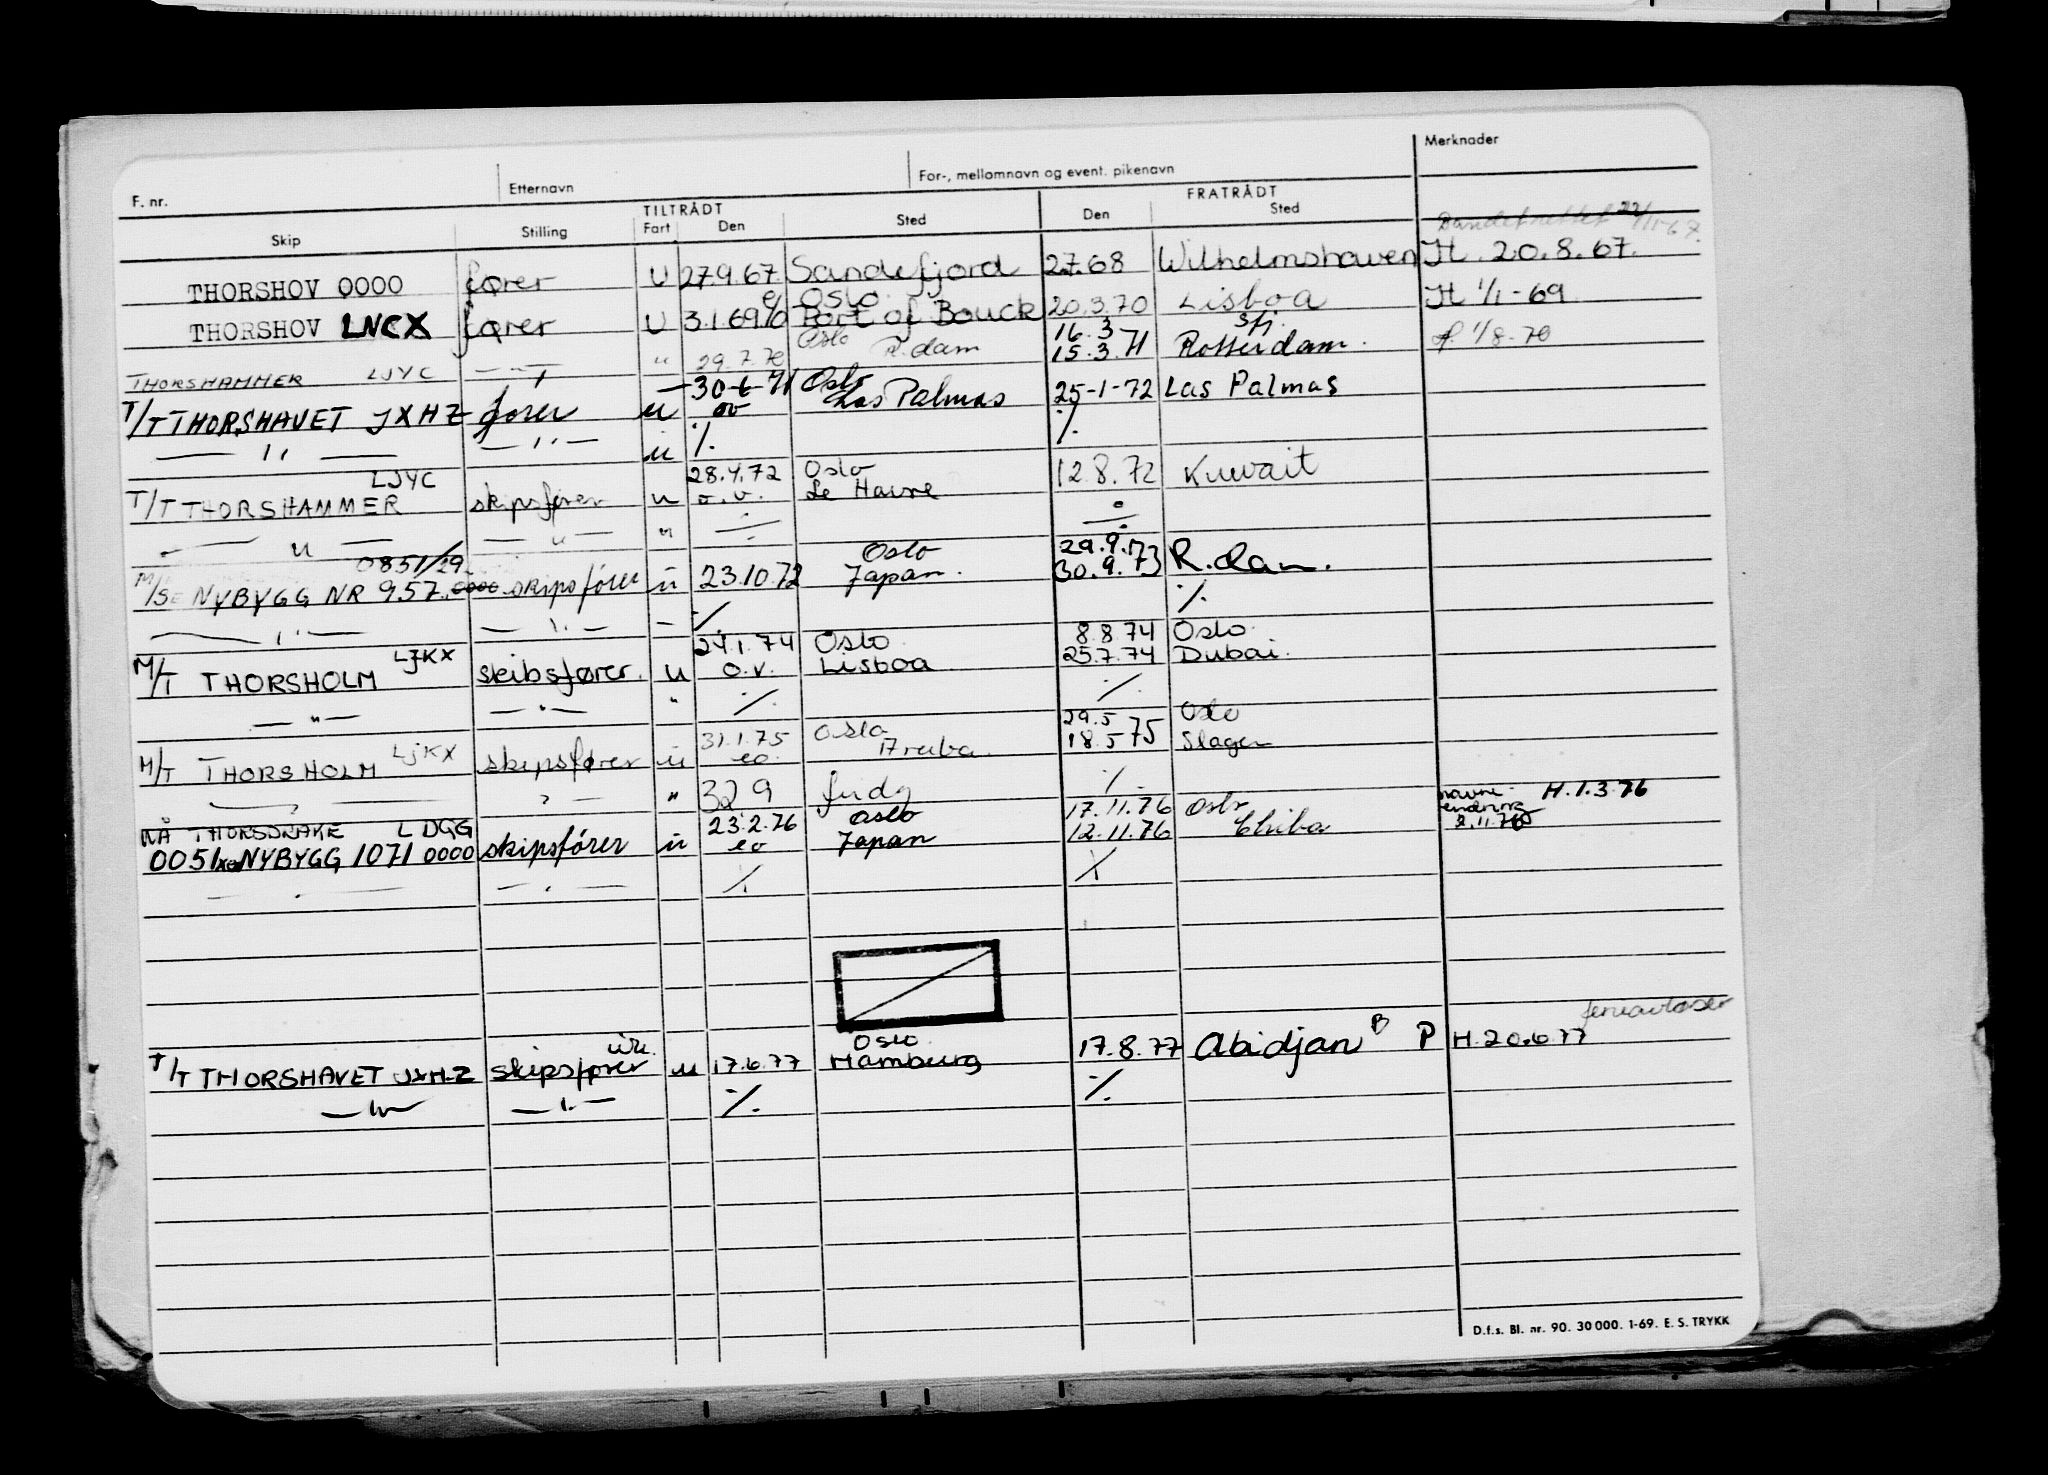 F. nr. Etternavn For-, mellomnavn og event. pikenavn Merknader
TILTRÅDT FRATRÅDT
Skip Stilling Fart Den Sted Den Sted
22/11-67.
THORSHOV 0000 fører U 27.9.67 Sandefjord 2.7.68 Wilhelmshaven H. 20.8.67.
Oslo
THORSHOV LNCX fører U 3.1.69 Port of Bouck 20.3.70 Lisboa H 1/1-69
Oslo 16.3 Sfj.
THORSHAMMER LJYC — " — " 29.7.70 R.dam 15.3.71 Rotterdam. 1/8-70
30-6-71 Oslo
T/T THORSHAVET JXHZ fører u ov Las Palmas 25-1-72 Las Palmas
— " — — " — u ./. ./.
LJYC 28.4.72 Oslo
T/T THORSHAMMER skipsfører u o.v. Le Havre 12.8.72 Kuwait
— u — — u — " ./. ./.
0851/29 Oslo 29.9.73
M/S NYBYGG NR 957 0000 skipsfører u 23.10.72 Japan. 30.9.73 R.dam.
— " — — " — — ./. ./.
LJKX 24.1.74 Oslo 8.8.74 Oslo
M/T THORSHOLM skibsfører. u o.v. Lisboa 25.7.74 Dubai.
— " — — " — " ./. ./.
LJKX 31.1.75 Oslo 29.5 Oslo
M/T THORSHOLM skipsfører u eo. Aruba. 18.5 75 Slagen
— " — — " — " 329 ./.
NÅ THORSDRAKE LDGG 23.2.76 Oslo 17.11.76 Oslo navne- H.1.3.76
0051 NYBYGG 1071 0000 skipsfører u eo Japan 12.11.76 Chiba endring 2.11.76
— " — — " — ./. ./.
ferieavløser
vik. Oslo
T/T THORSHAVET JXHZ skipsfører u 17.6.77 Hamburg 17.8.77 Abidjan B P H.20.6.77
— " — — " — ./. ./.
D.f.s. Bl. nr. 90. 30 000. 1-69. E. S. TRYKK